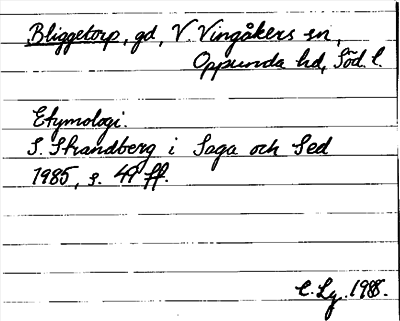 Bliggetorp, gd, V. Vingåkers sn,
Oppunda hd, Söd. l.
Etymologi.
S. Strandberg i Saga och Sed
1985, s. 49 ff.
C. Lg. 1988.